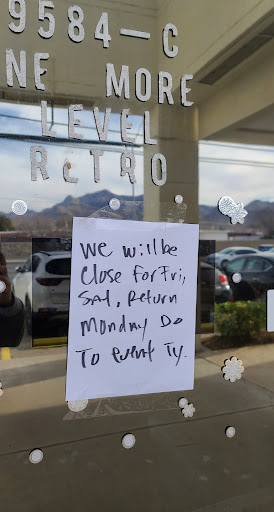 9584-C
NE MORE
LEVEL
ReTRO
We will be
Close For Fri,
Sat, Return
Monday Do
To event Ty.